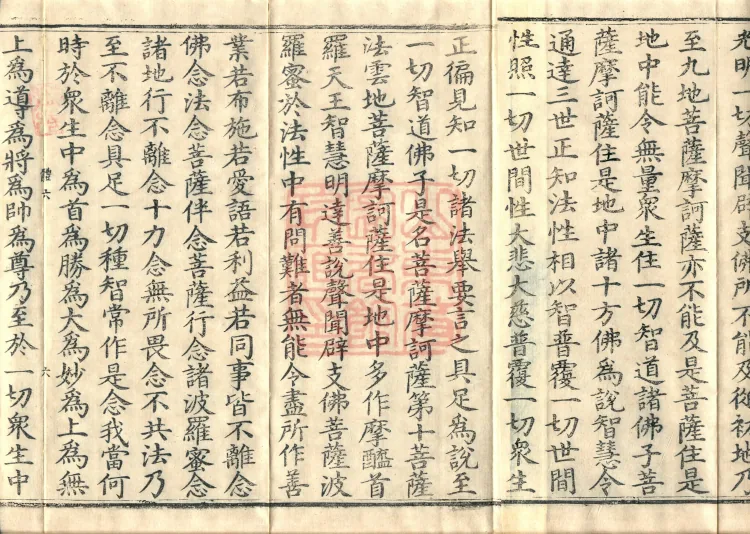 光明一切聲聞辟支佛所不能及從初地乃
至九地菩薩摩訶薩亦不能及是菩薩住是
地中能令無量衆生住一切智道諸佛子菩
薩摩訶薩住是地中諸十方佛為說智慧令
通達三世正知法性相以智普覆一切世間
性照一切世間性大悲大慈普覆一切衆生
正徧見知一切諸法舉要言之具足為說至
一切智道佛子是名菩薩摩訶薩第十菩薩
法雲地菩薩摩訶薩住是地中多作摩醯首
羅天王智慧明達善說聲聞辟支佛菩薩波
羅蜜於法性中有問難者無能令盡所作善
業若布施若愛語若利益若同事皆不離念
佛念法念菩薩伴念菩薩行念諸波羅蜜念
諸地行不離念十力念無所畏念不共法乃
至不離念具足一切種智常作是念我當何
體六 六
時於衆生中為首為勝為大為妙為上為無
上為導為將為帥為尊乃至於一切衆生中